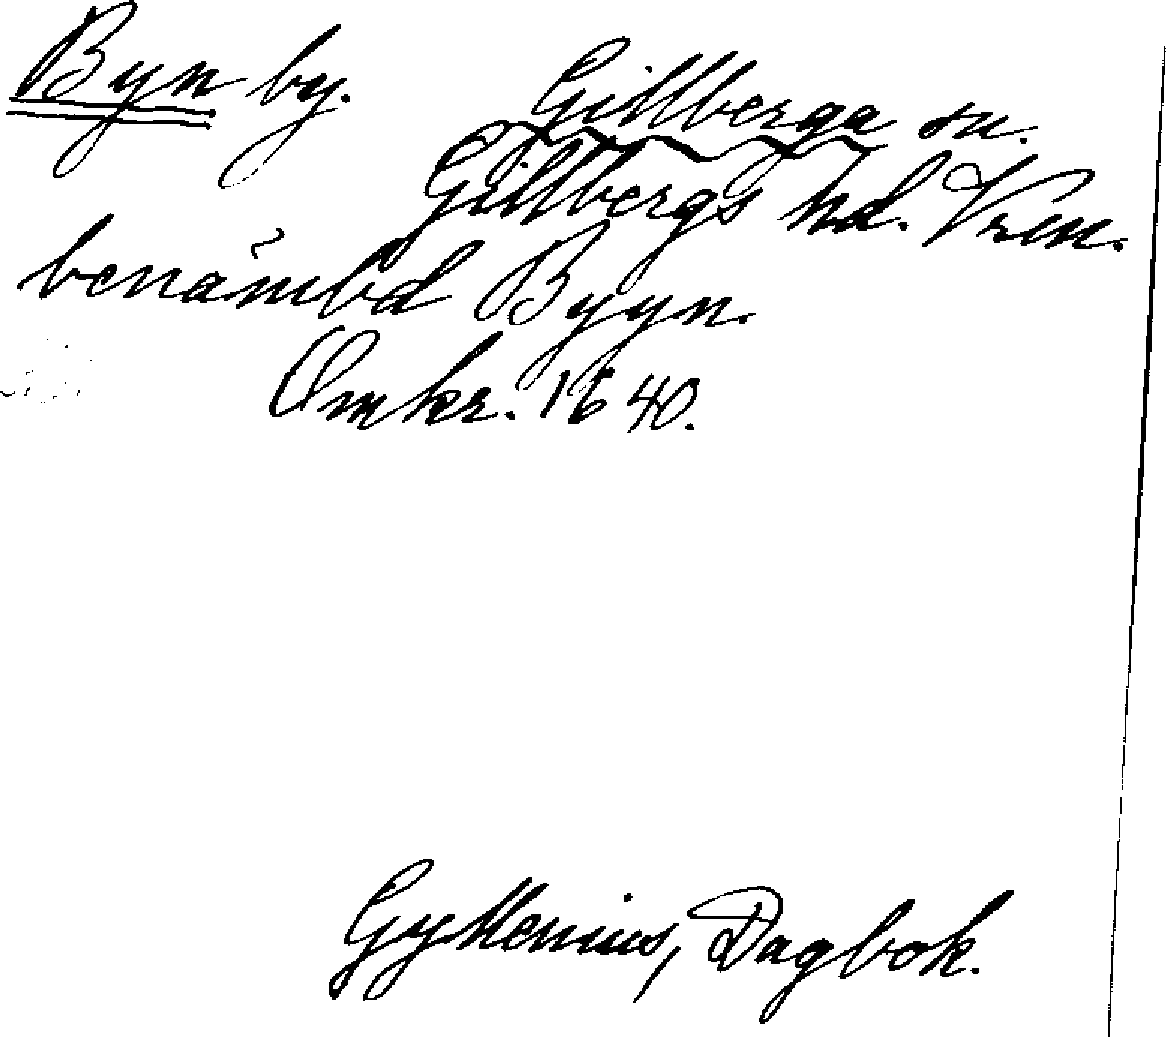 Byn by. Gillberga sn.
Gillbergs hd. Vrm.
benämbd Byyn.
Omkr. 1640.
Gyllenius, Dagbok.